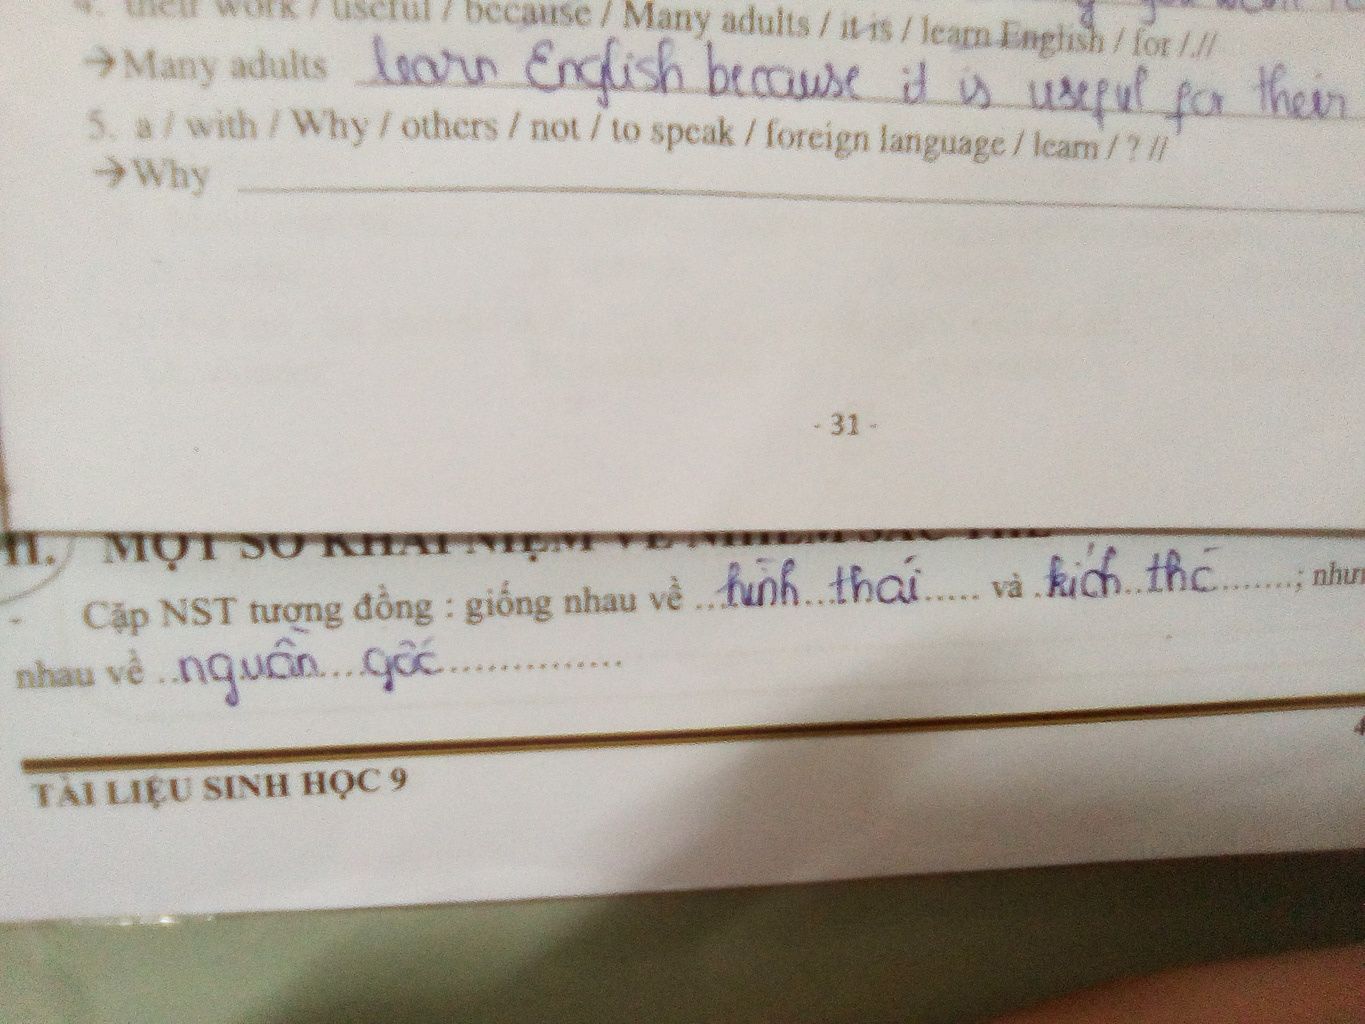 4. their work / useful / because / Many adults / it is / learn English / for /.//
→ Many adults learn English because it is useful for their
5. a / with / Why / others / not / to speak / foreign language / learn / ? //
→ Why
- 31 -
II. MỘT SỐ KHÁI NIỆM VỀ NHIỄM SẮC THỂ
- Cặp NST tương đồng : giống nhau về ...hình...thái...... và ..kích...thc........;
nhau về ..nguồn....gốc................
TÀI LIỆU SINH HỌC 9